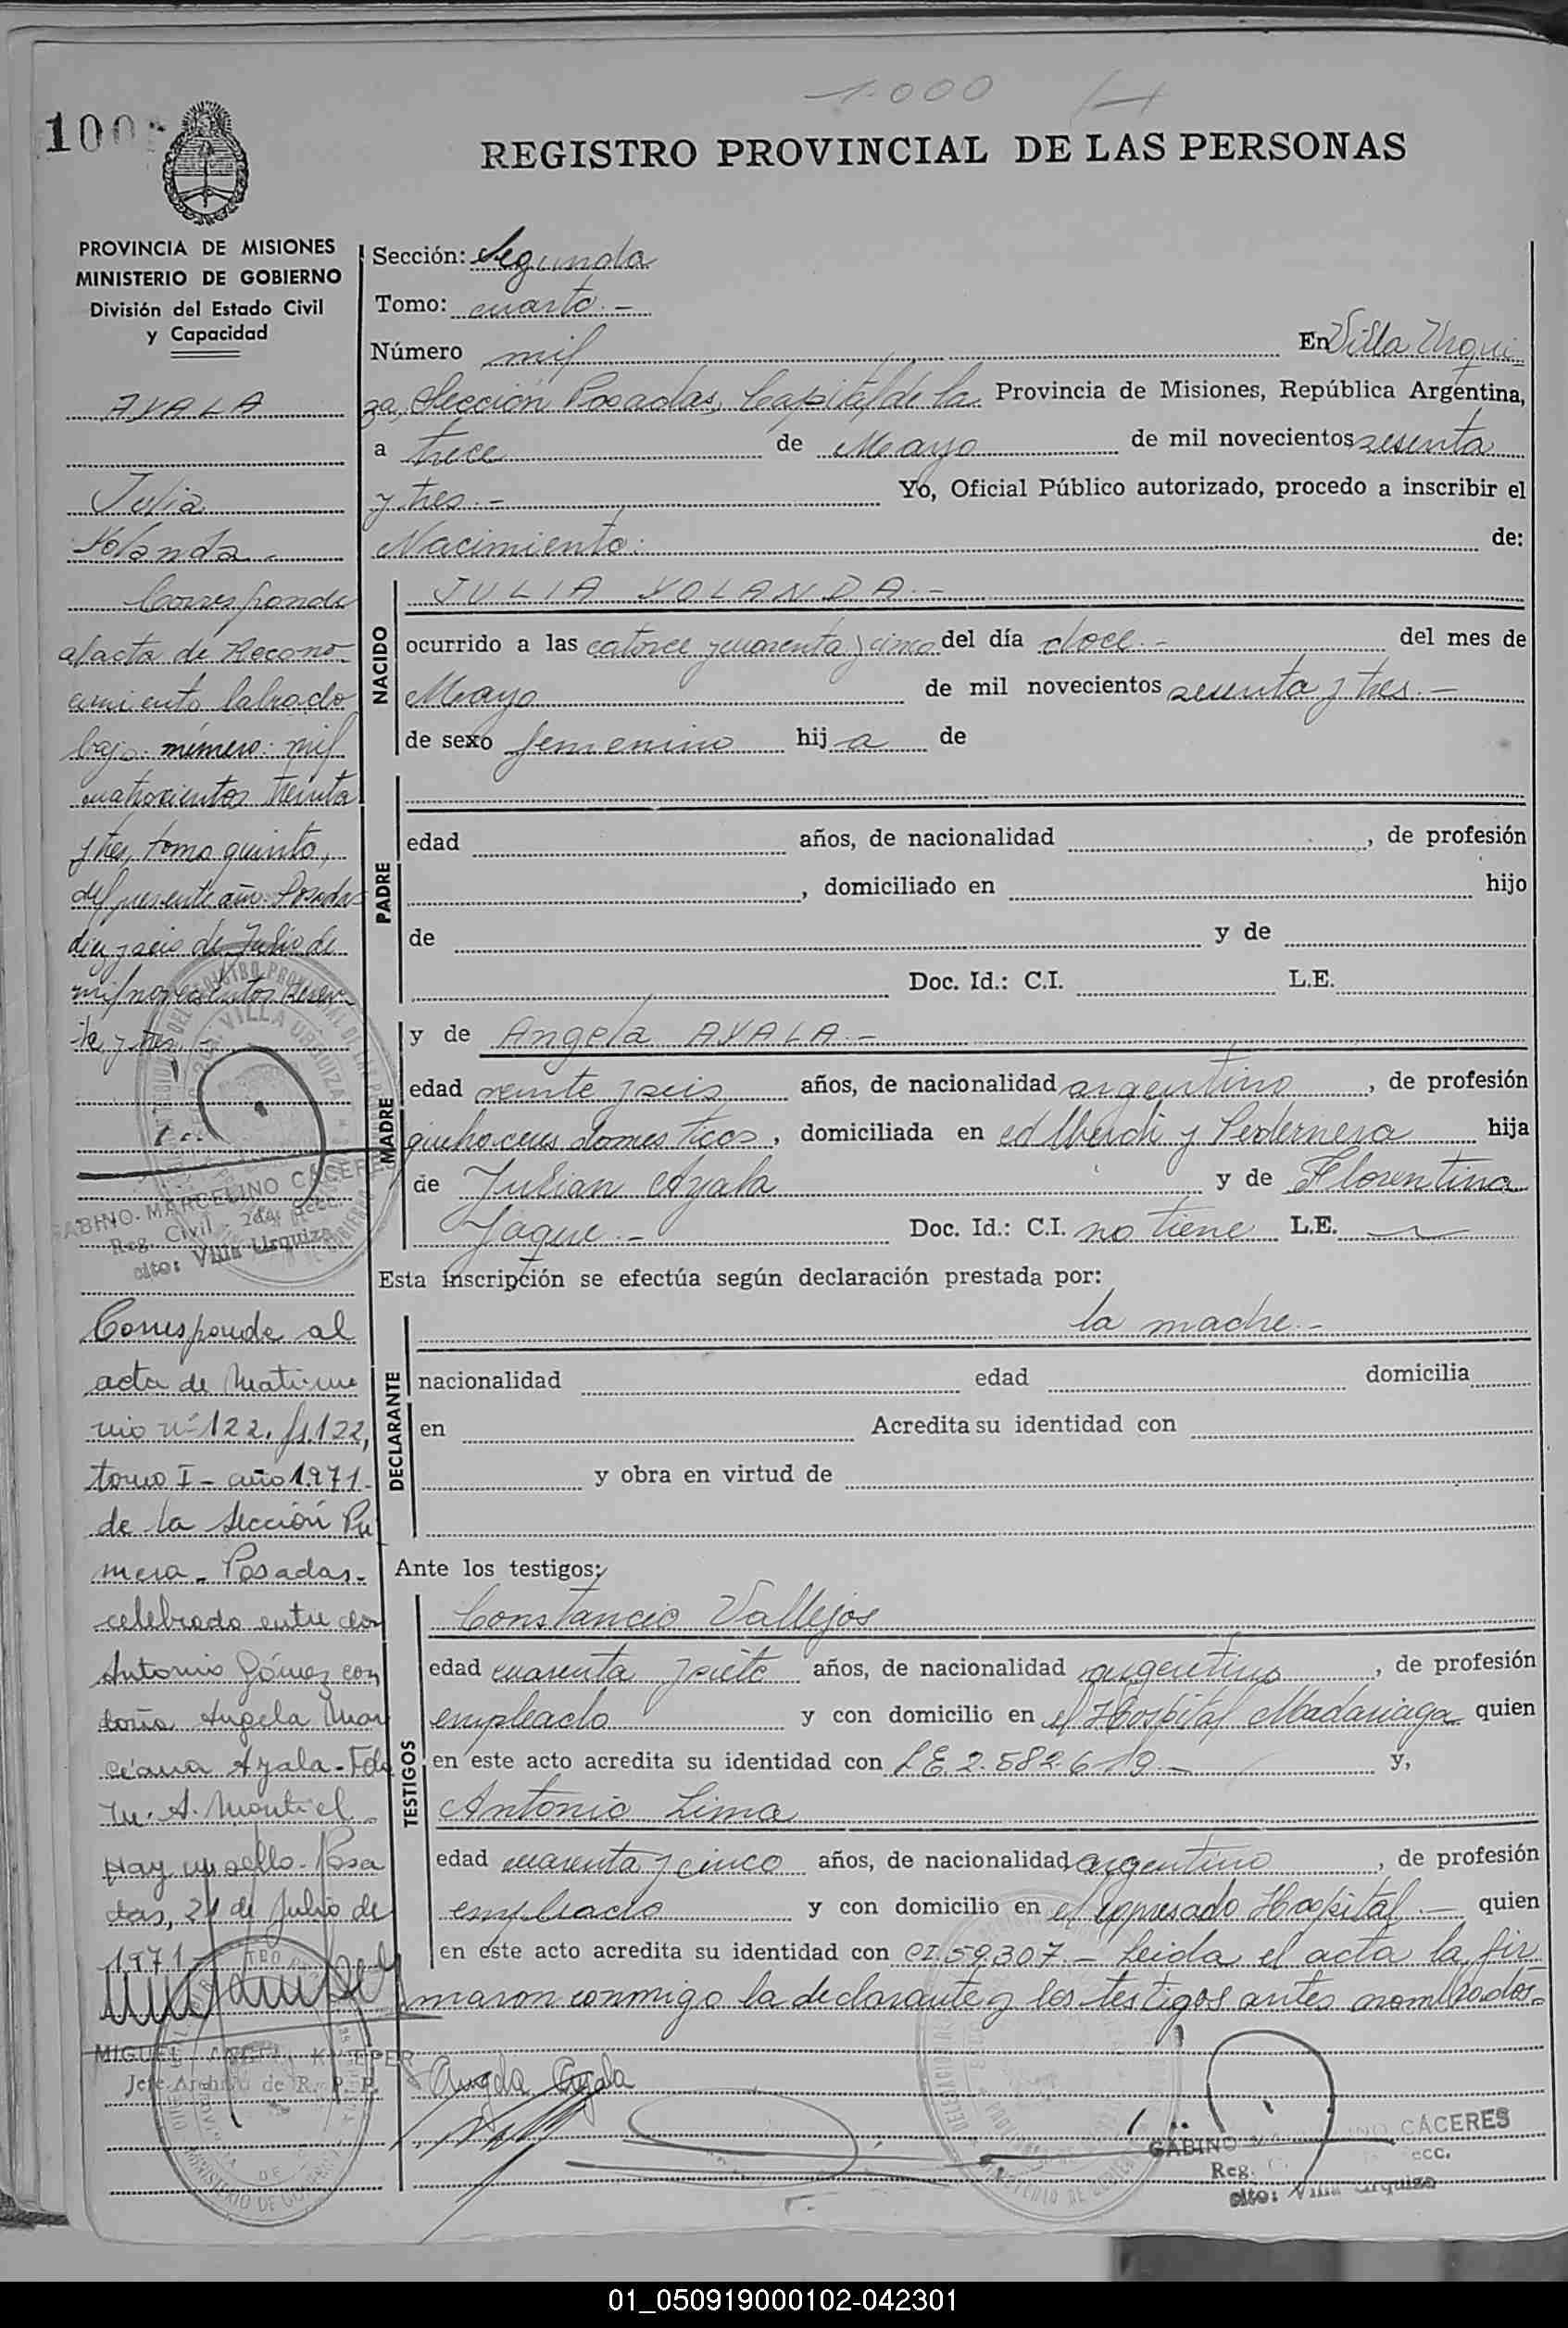 1.000
100
REGISTRO PROVINCIAL DE LAS PERSONAS
PROVINCIA DE MISIONES
MINISTERIO DE GOBIERNO
División del Estado Civil
y Capacidad
AYALA
Julia
Yolanda.-
Corresponde
al acta de Recono-
cimiento labrado
bajo número: mil
cuatrocientos treinta
y tres, tomo quinto,
del presente año. Posadas
diez y seis de Julio de
mil novecientos sesen-
ta y tres.-
GABINO MARCELINO CACERES
Reg. Civil - 2da. Secc.
Villa Urquiza
Corresponde al
acta de Matrimo
nio nº 122, fs. 122,
tomo I - año 1971-
de la Sección Pri
mera - Posadas-
celebrado entre don
Antonio Gómez con
doña Angela Mar
ciana Ayala - Fdo
M. A. Montiel
Hay un sello - Posa
das, 21 de Julio de
1971-
MIGUEL
Jefe Archivo de R. P. P.
Sección: Segunda
Tomo: cuarto.-
Número mil En Villa Urqui
za, Sección Posadas, Capital de la Provincia de Misiones, República Argentina,
a trece de Mayo de mil novecientos sesenta
y tres.- Yo, Oficial Público autorizado, procedo a inscribir el
Nacimiento: de:
NACIDO
JULIA YOLANDA.-
ocurrido a las catorce y cuarenta y cinco del día doce.- del mes de
Mayo de mil novecientos sesenta y tres.-
de sexo femenino hij a de
PADRE
edad años, de nacionalidad , de profesión
, domiciliado en hijo
de y de
Doc. Id.: C.I. L.E.
MADRE
y de Angela AYALA.-
edad veinte y seis años, de nacionalidad argentino, de profesión
quehaceres domesticos, domiciliada en ed Alberdi y Pedernera hija
de Julian Ayala y de Florentina
Jaque.- Doc. Id.: C.I. no tiene L.E.
Esta inscripción se efectúa según declaración prestada por:
DECLARANTE
la madre.-
nacionalidad edad domicilia
en Acredita su identidad con
y obra en virtud de
Ante los testigos:
TESTIGOS
Constancio Vallejos
edad cuarenta y siete años, de nacionalidad argentino, de profesión
empleado y con domicilio en el Hospital Madariaga quien
en este acto acredita su identidad con LE. 2.582.619.- y,
Antonio Lima
edad cuarenta y cinco años, de nacionalidad argentino, de profesión
empleado y con domicilio en el expresado Hospital.- quien
en este acto acredita su identidad con CI. 59.307.- Leida el acta la fir
maron conmigo la declarante y los testigos antes nombrados.-
Angela Ayala
GABINO CACERES
Reg.
Villa Urquiza
01_050919000102-042301